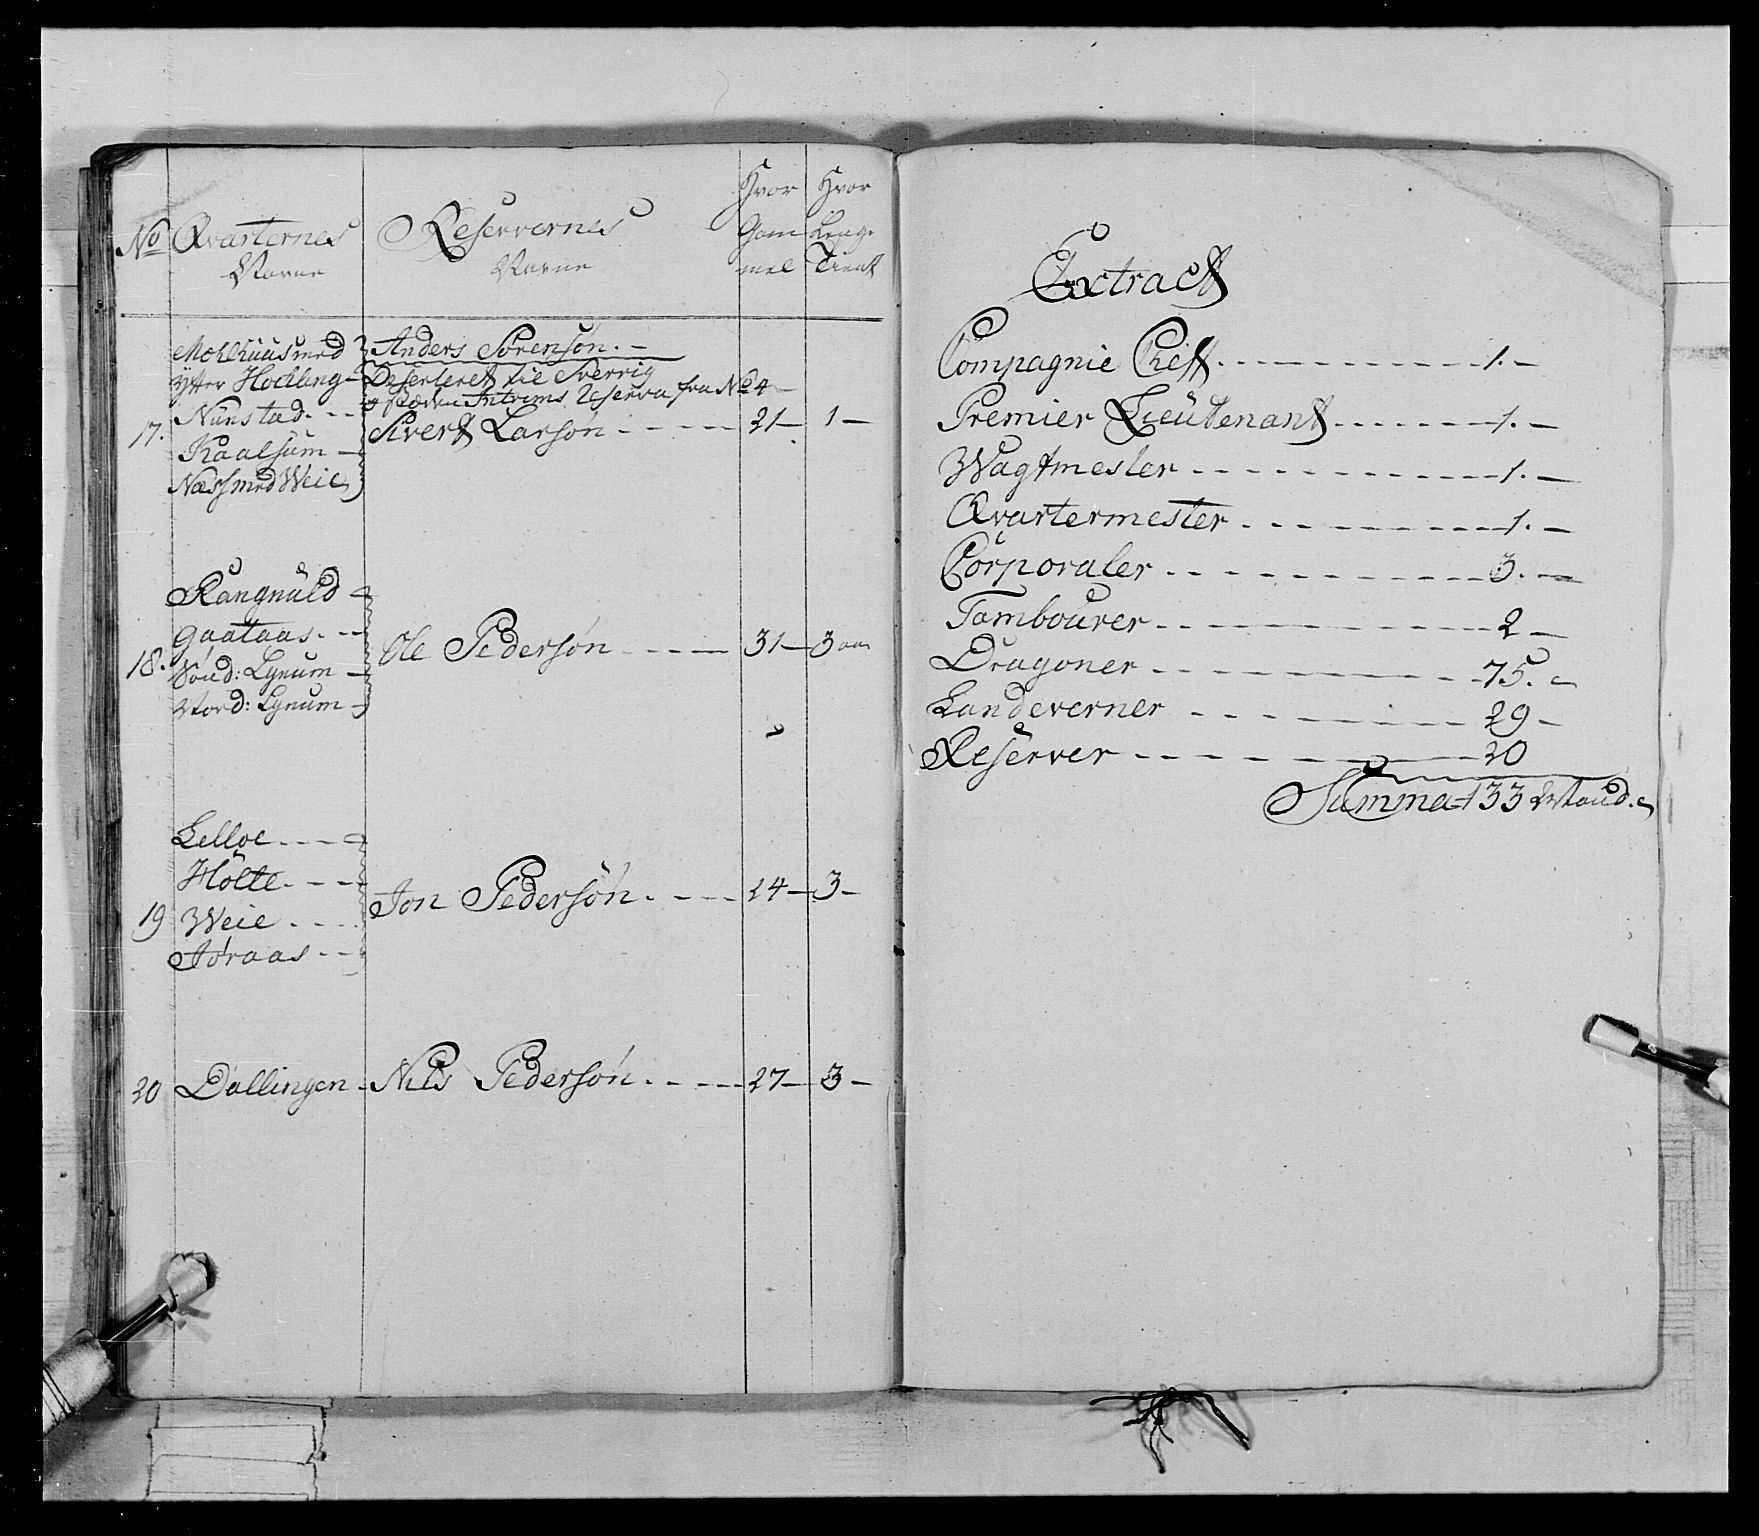 No Qvarternes Navne
Reservernes Navne
Hvor Gam mel
Hvor Leng. Tient
17.
Mælhuus med
Ytter Hocling
Nunstad
Kaalsum
Næss med Weie
Anders Sörensön
Deserteret til Sverrig
Intrims Reserva fra No 4
Sivert Larsön 21 1
18.
Rangnuld
Gaataas
Sönd: Lynum
Nord: Lynum
Ole Pedersön 31 3 aar
19
Lelloe
Holte
Weie
Jøraas
Jon Pedersön 24 3
20 Dallingen Nils Pedersön 27 3
Extract
Compagnie Cheff 1.
Premier Lieutenant 1.
Wagtmester 1.
Qvartermester 1.
Corporaler 3.
Tambourer 2
Dragoner 75.
Landeverner 29
Reserver 20
Summa 133 Mand.